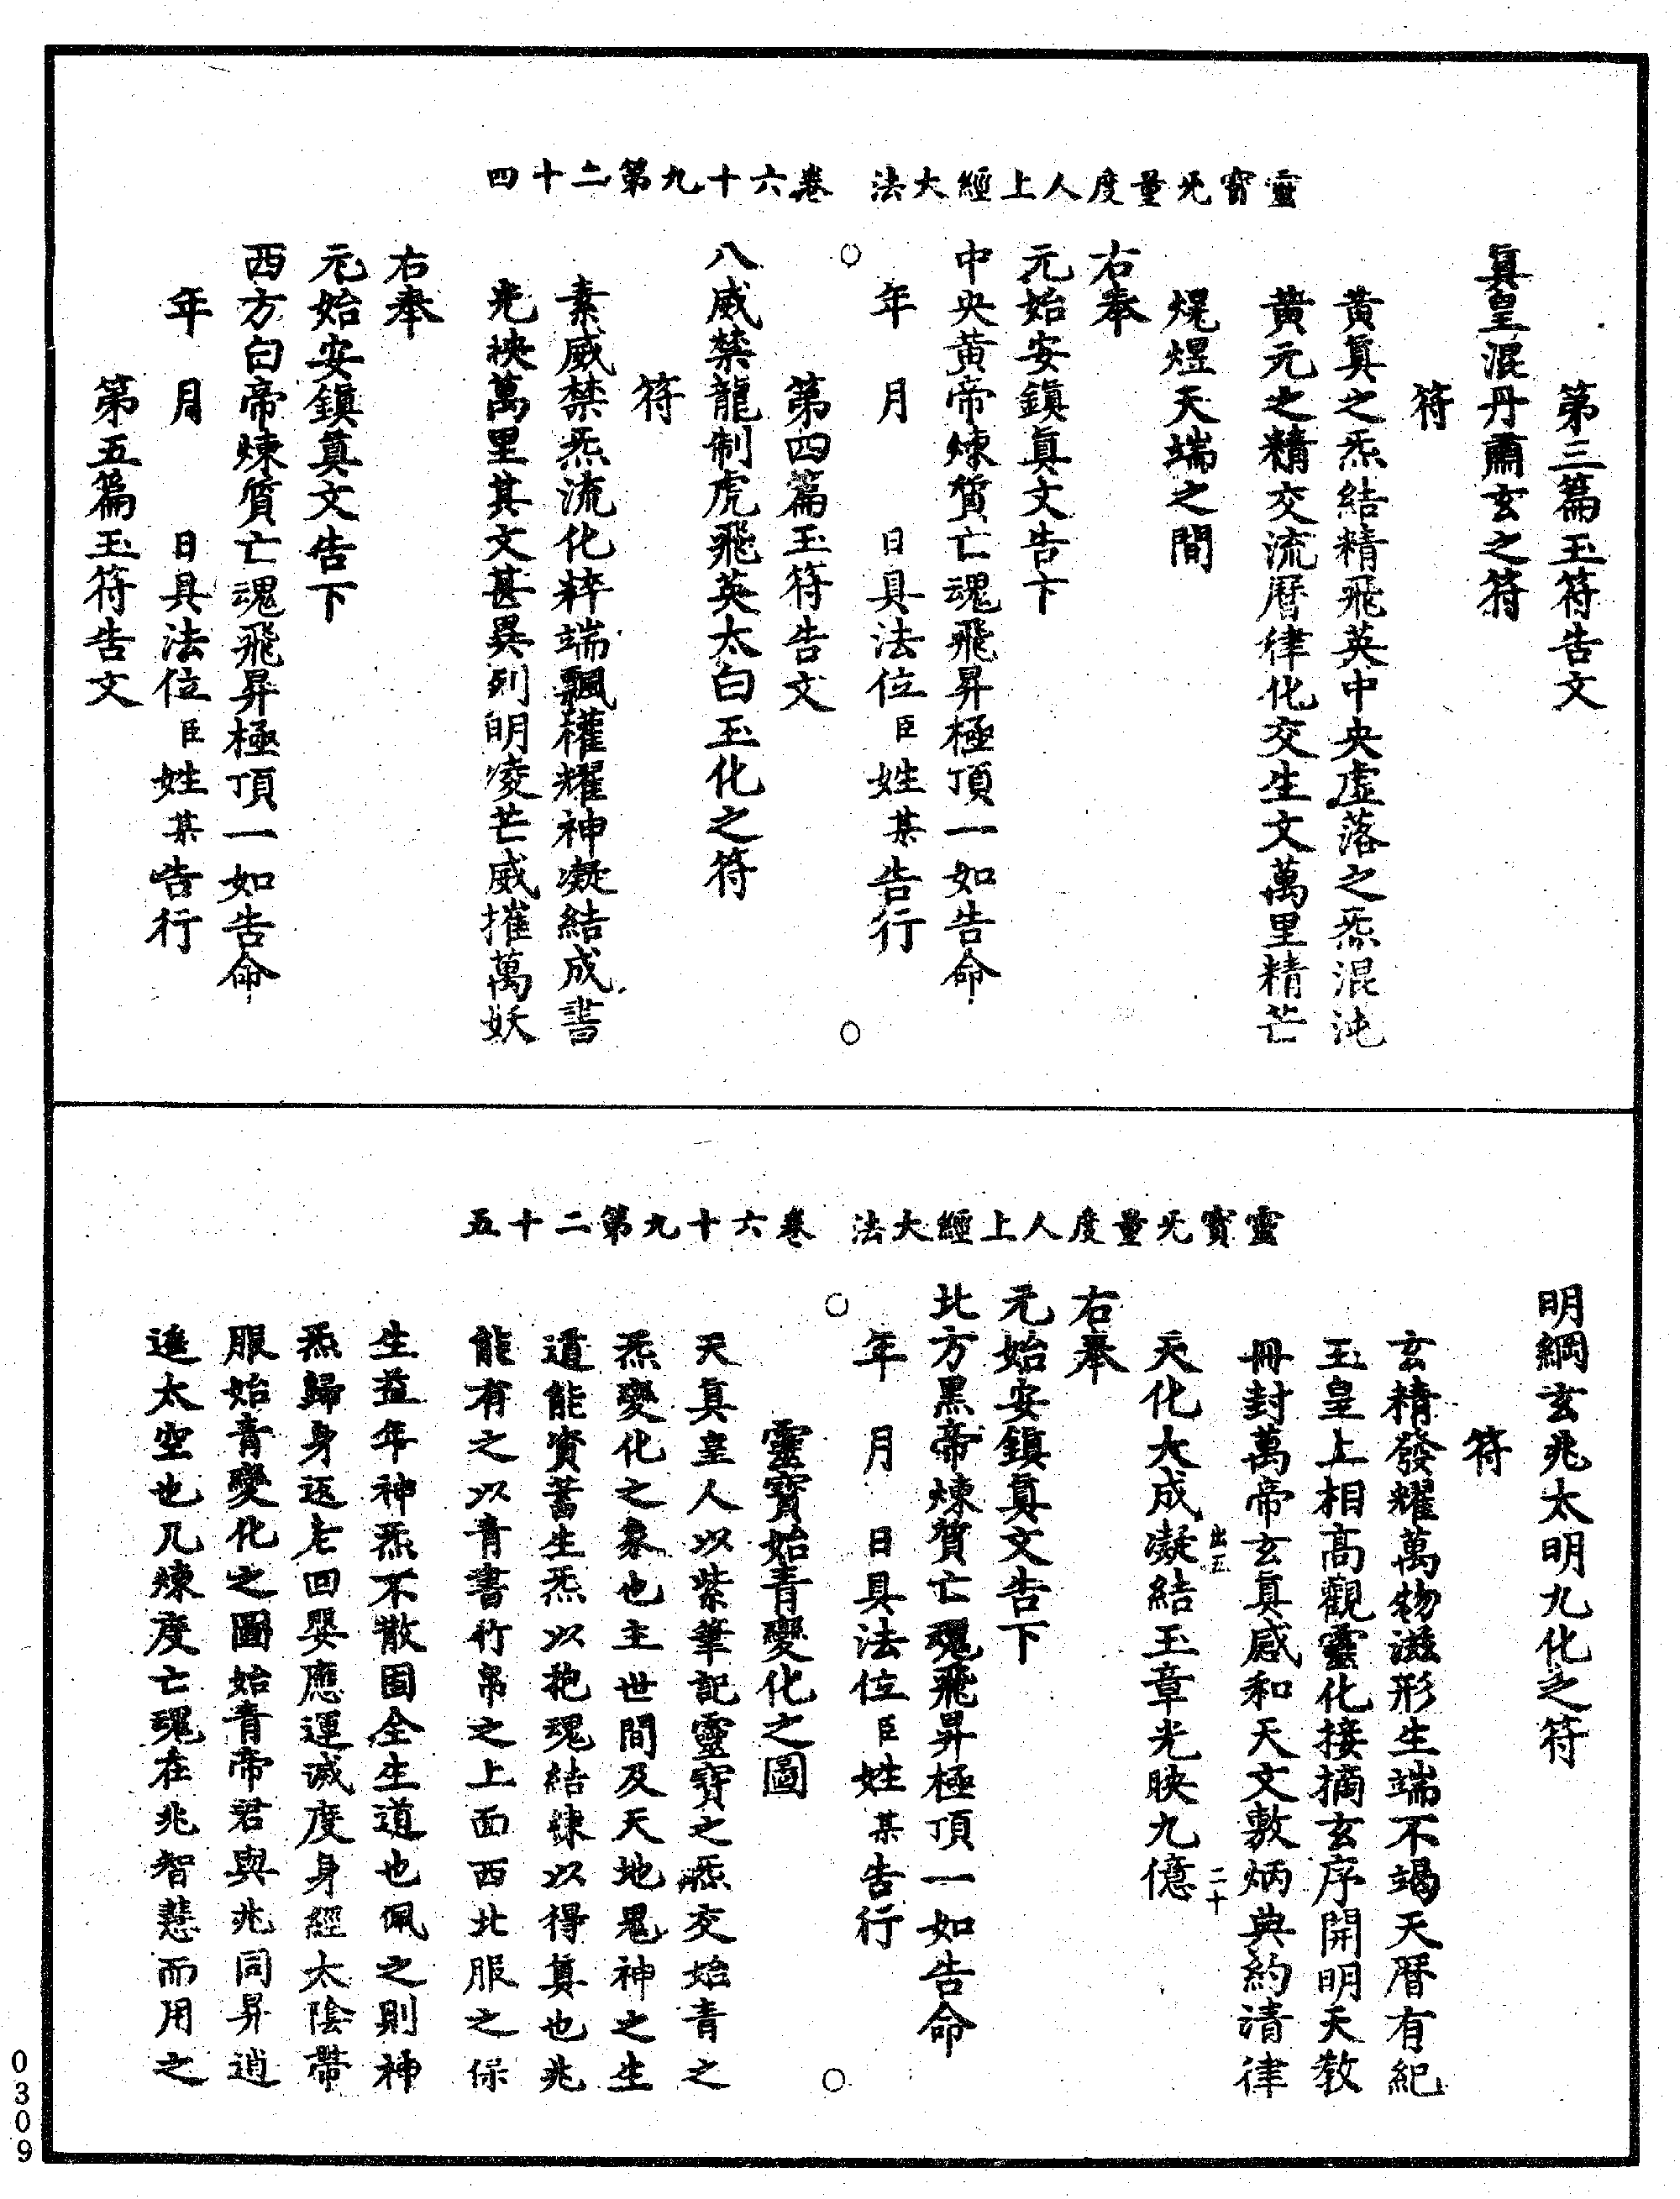 靈寳旡量度人上經大法　卷六十九第二十四
第三篇玉符告文
眞皇混丹肅玄之符
符
黃眞之炁結精飛英中央虛落之炁混沌
黃元之精交流曆律化交生文萬里精芒
焜煜天端之間
右奉
元始安鎭眞文告下
中央黃帝煉質亡魂飛昇極頂一如告命
年　月　日具法位臣姓某告行
第四篇玉符告文
八威禁龍制虎飛英太白玉化之符
符
素威禁炁流化粹端飄權耀神凝結成書
光揜萬里其文甚異列明凌芒威摧萬妖
右奉
元始安鎭眞文告下
西方白帝煉質亡魂飛昇極頂一如告命
年　月　日具法位臣姓某告行
第五篇玉符告文
靈寳旡量度人上經大法　卷六十九第二十五
明綱玄兆太明九化之符
符
玄精發耀萬物滋形生端不竭天曆有紀
玉皇上相高觀靈化接摘玄序開明天敎
冊封萬帝玄眞感和天文敷炳典約清律
出五　二十
天化大成凝結玉章光映九億
右奉
元始安鎭眞文告下
北方黑帝煉質亡魂飛昇極頂一如告命
年　月　日具法位臣姓某告行
靈寳始青變化之圖
天眞皇人以紫筆記靈寳之炁交始青之
炁變化之象也主世間及天地鬼神之生
道能資蓄生炁以抱魂結鍊以得眞也兆
能有之以青書竹帛之上面西北服之保
生益年神炁不散固全生道也佩之則神
炁歸身返老回嬰應運滅度身經太陰帶
服始青變化之圖始青帝君與兆同昇逍
遙太空也凡煉度亡魂在兆智慧而用之
0309